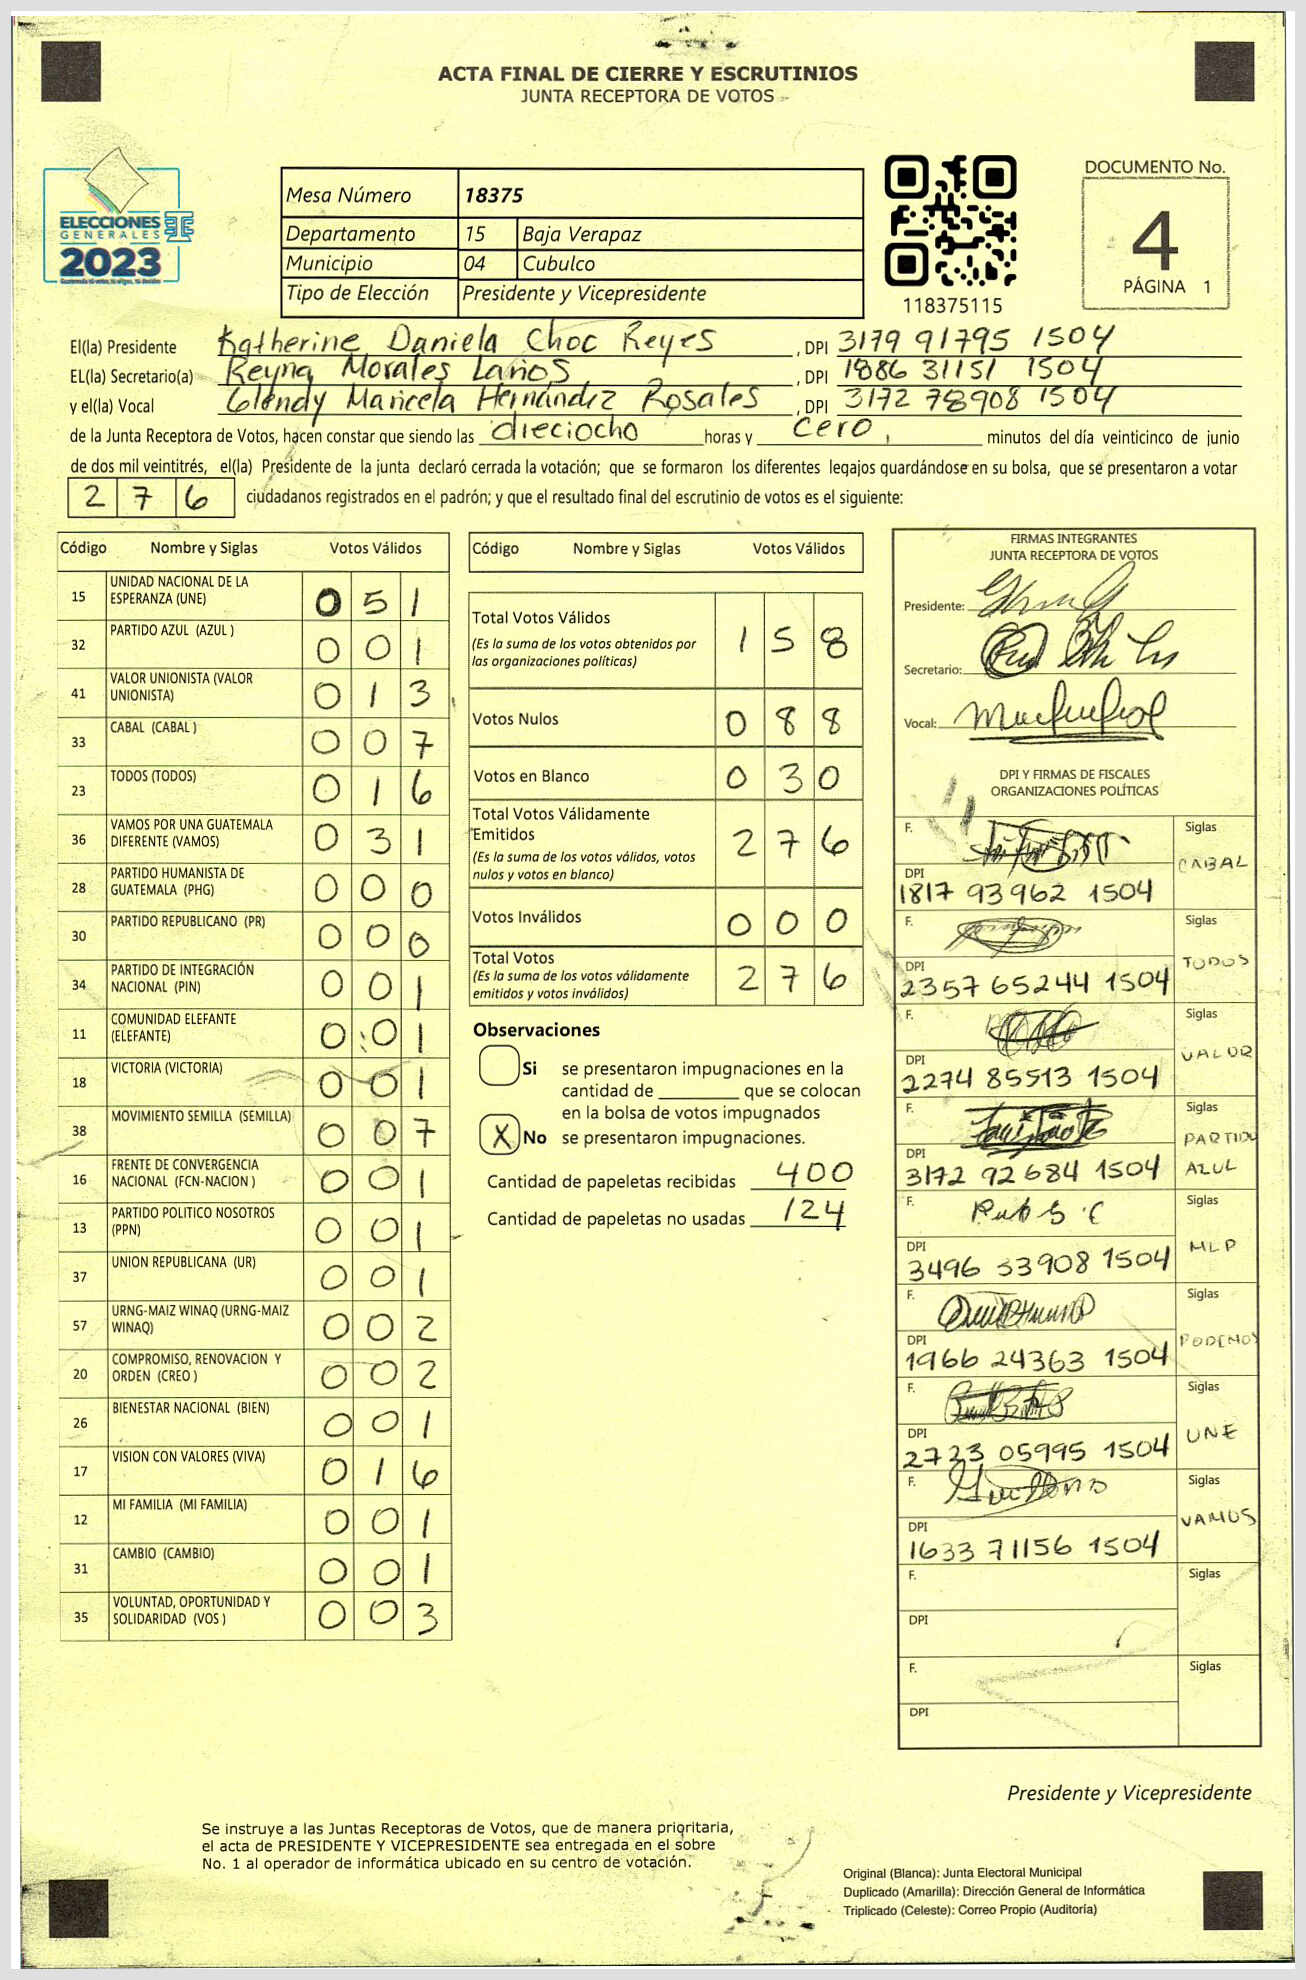 ACTA FINAL DE CIERRE Y ESCRUTINIOS
JUNTA RECEPTORA DE VOTOS
ELECCIONES
GENERALES
2023
Mesa Número 18375
Departamento 15 Baja Verapaz
Municipio 04 Cubulco
Tipo de Elección Presidente y Vicepresidente
118375115
DOCUMENTO No.
4
PÁGINA 1
El(la) Presidente Katherine Daniela Choc Reyes, DPI 3179 91795 1504
EL(la) Secretario(a) Reyna Morales Laños, DPI 1886 31151 1504
y el(la) Vocal Glendy Maricela Hernández Rosales, DPI 3172 78908 1504
de la Junta Receptora de Votos, hacen constar que siendo las dieciocho horas y cero, minutos del día veinticinco de junio
de dos mil veintitrés, el(la) Presidente de la junta declaró cerrada la votación; que se formaron los diferentes legajos guardándose en su bolsa, que se presentaron a votar
276 ciudadanos registrados en el padrón; y que el resultado final del escrutinio de votos es el siguiente:
Código Nombre y Siglas Votos Válidos
15 UNIDAD NACIONAL DE LA ESPERANZA (UNE) 051
32 PARTIDO AZUL (AZUL ) 001
41 VALOR UNIONISTA (VALOR UNIONISTA) 013
33 CABAL (CABAL ) 007
23 TODOS (TODOS) 016
36 VAMOS POR UNA GUATEMALA DIFERENTE (VAMOS) 031
28 PARTIDO HUMANISTA DE GUATEMALA (PHG) 000
30 PARTIDO REPUBLICANO (PR) 000
34 PARTIDO DE INTEGRACIÓN NACIONAL (PIN) 001
11 COMUNIDAD ELEFANTE (ELEFANTE) 001
18 VICTORIA (VICTORIA) 001
38 MOVIMIENTO SEMILLA (SEMILLA) 007
16 FRENTE DE CONVERGENCIA NACIONAL (FCN-NACION ) 001
13 PARTIDO POLITICO NOSOTROS (PPN) 001
37 UNION REPUBLICANA (UR) 001
57 URNG-MAIZ WINAQ (URNG-MAIZ WINAQ) 002
20 COMPROMISO, RENOVACION Y ORDEN (CREO ) 002
26 BIENESTAR NACIONAL (BIEN) 001
17 VISION CON VALORES (VIVA) 016
12 MI FAMILIA (MI FAMILIA) 001
31 CAMBIO (CAMBIO) 001
35 VOLUNTAD, OPORTUNIDAD Y SOLIDARIDAD (VOS ) 003
Código Nombre y Siglas Votos Válidos
Total Votos Válidos 158
(Es la suma de los votos obtenidos por
las organizaciones políticas)
Votos Nulos 088
Votos en Blanco 030
Total Votos Válidamente
Emitidos 276
(Es la suma de los votos válidos, votos
nulos y votos en blanco)
Votos Inválidos 000
Total Votos 276
(Es la suma de los votos válidamente
emitidos y votos inválidos)
Observaciones
Si se presentaron impugnaciones en la
cantidad de ________ que se colocan
en la bolsa de votos impugnados
X No se presentaron impugnaciones.
Cantidad de papeletas recibidas 400
Cantidad de papeletas no usadas 124
FIRMAS INTEGRANTES
JUNTA RECEPTORA DE VOTOS
Presidente:
Secretario:
Vocal:
DPI Y FIRMAS DE FISCALES
ORGANIZACIONES POLÍTICAS
F. Siglas CABAL
DPI 1817 93962 1504
F. Siglas TODOS
DPI 2357 65244 1504
F. Siglas VALOR
DPI 2274 85513 1504
F. Siglas PARTIDO AZUL
DPI 3172 92684 1504
F. Siglas MLP
DPI 3496 53908 1504
F. Siglas PODEMOS
DPI 1966 24363 1504
F. Siglas UNE
DPI 2723 05995 1504
F. Siglas VAMOS
DPI 1633 71156 1504
F. Siglas
DPI
F. Siglas
DPI
Presidente y Vicepresidente
Se instruye a las Juntas Receptoras de Votos, que de manera prioritaria,
el acta de PRESIDENTE Y VICEPRESIDENTE sea entregada en el sobre
No. 1 al operador de informática ubicado en su centro de votación.
Original (Blanca): Junta Electoral Municipal
Duplicado (Amarilla): Dirección General de Informática
Triplicado (Celeste): Correo Propio (Auditoría)